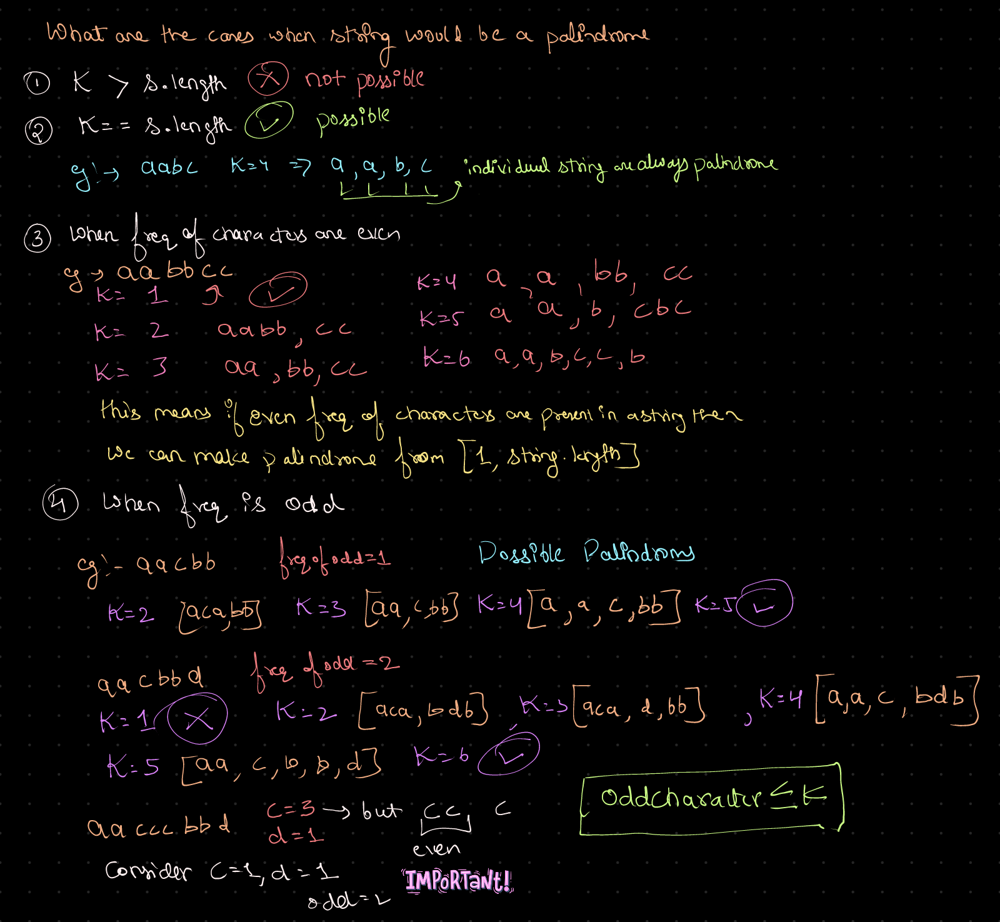 What are the cases when string would be a palindrome
① K > s.length ⊗ not possible
② K == s.length ✓ possible
eg:→ aabc K=4 ⇒ a, a, b, c individual string are always palindrome
③ When freq of characters are even
eg → aabbcc
K= 1 ✓
K= 2 aabb, cc
K= 3 aa, bb, cc
K=4 a, a, bb, cc
K=5 a a, b, cbc
K=6 a, a, b, c, c, b
this means if even freq of characters are present in a string then
we can make palindrome from [1, string.length]
④ When freq is odd
eg:- aacbb freq of odd=1 Possible Palindroms
K=2 [aca, bb] K=3 [aa, c, bb] K=4 [a, a, c, bb] K=5 ✓
aacbbd freq of odd =2
K=1 ⊗ K=2 [aca, bdb], K=3 [aca, d, bb], K=4 [a, a, c, bdb]
K=5 [aa, c, b, b, d] K=6 ✓
oddcharacter ≤ K
aacccbbd c=3 → but cc, c
d=1
even
Consider c=1, d=1
odd=2
IMPORTANT!